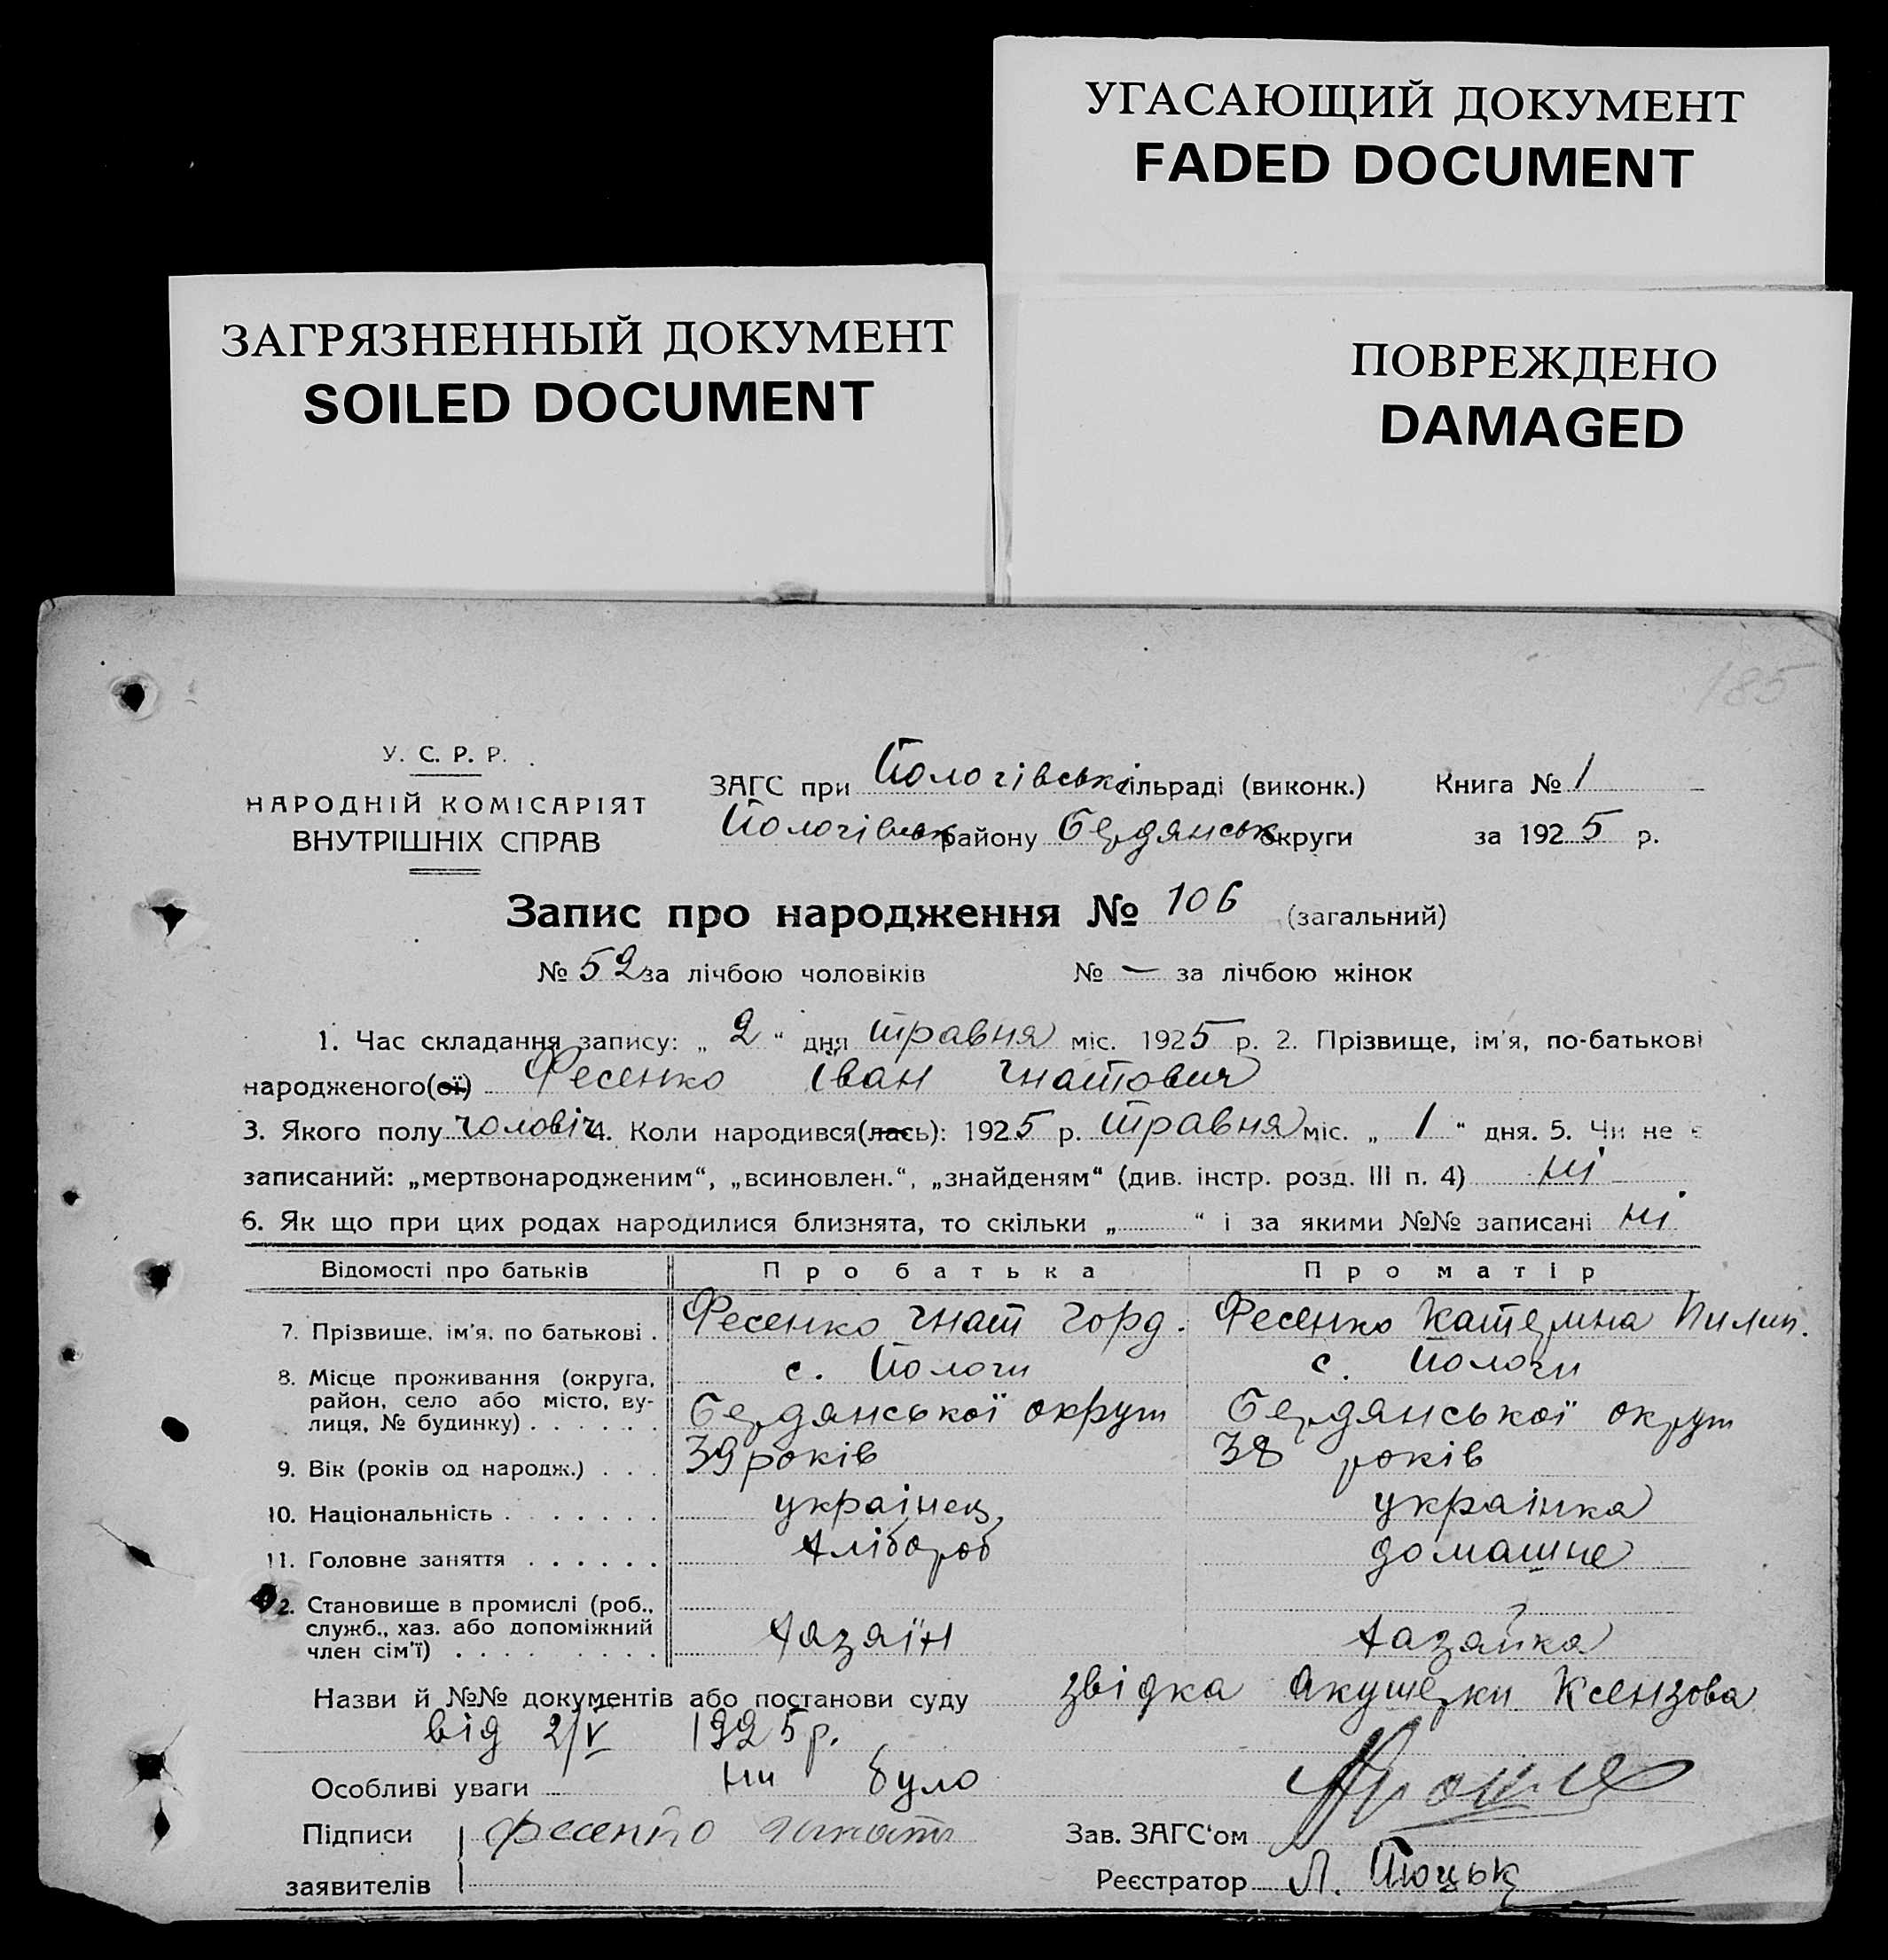 УГАСАЮЩИЙ ДОКУМЕНТ
FADED DOCUMENT
ЗАГРЯЗНЕННЫЙ ДОКУМЕНТ
SOILED DOCUMENT
ПОВРЕЖДЕНО
DAMAGED
185
У. С. Р. Р.
НАРОДНІЙ КОМІСАРІЯТ
ВНУТРІШНІХ СПРАВ
ЗАГС при Пологівськ сільраді (виконк.) Книга № 1
Пологівськ району Бердянськ округи за 1925 р.
Запис про народження № 106 (загальний)
№ 52 за лічбою чоловіків № — за лічбою жінок
1. Час складання запису: „ 2 “ дня травня міс. 1925 р. 2. Прізвище, ім'я, по-батькові
народженого(ої) Фесенко Іван Гнатович
3. Якого полу чоловіч 4. Коли народився(лась): 1925 р. травня міс. „ 1 “ дня. 5. Чи не є
записаний: „мертвонародженим“, „всиновлен.“, „знайденям“ (див. інстр. розд. III п. 4) ні
6. Як що при цих родах народилися близнята, то скільки „ “ і за якими №№ записані ні
Відомості про батьків Про батька Про матір
7. Прізвище, ім'я, по батькові . Фесенко Гнат Горд. Фесенко Катерина Пилип.
8. Місце проживання (округа, район, село або місто, вулиця, № будинку) . . . . . . с. Пологи Бердянської округи с. Пологи Бердянської округи
9. Вік (років од народж.) . . . 39 років 38 років
10. Національність . . . . . . . українец українка
11. Головне заняття . . . . . . хлібороб домашнє
12. Становище в промислі (роб., служб., хаз. або допоміжний член сім'ї) . . . . . . . . . хазяїн хазяйка
Назви й №№ документів або постанови суду звідка акушерки Ксензова
від 2/V 1925 р.
Особливі уваги ни було
Підписи Фесенко Зав. ЗАГС'ом
заявителів Реєстратор Л.